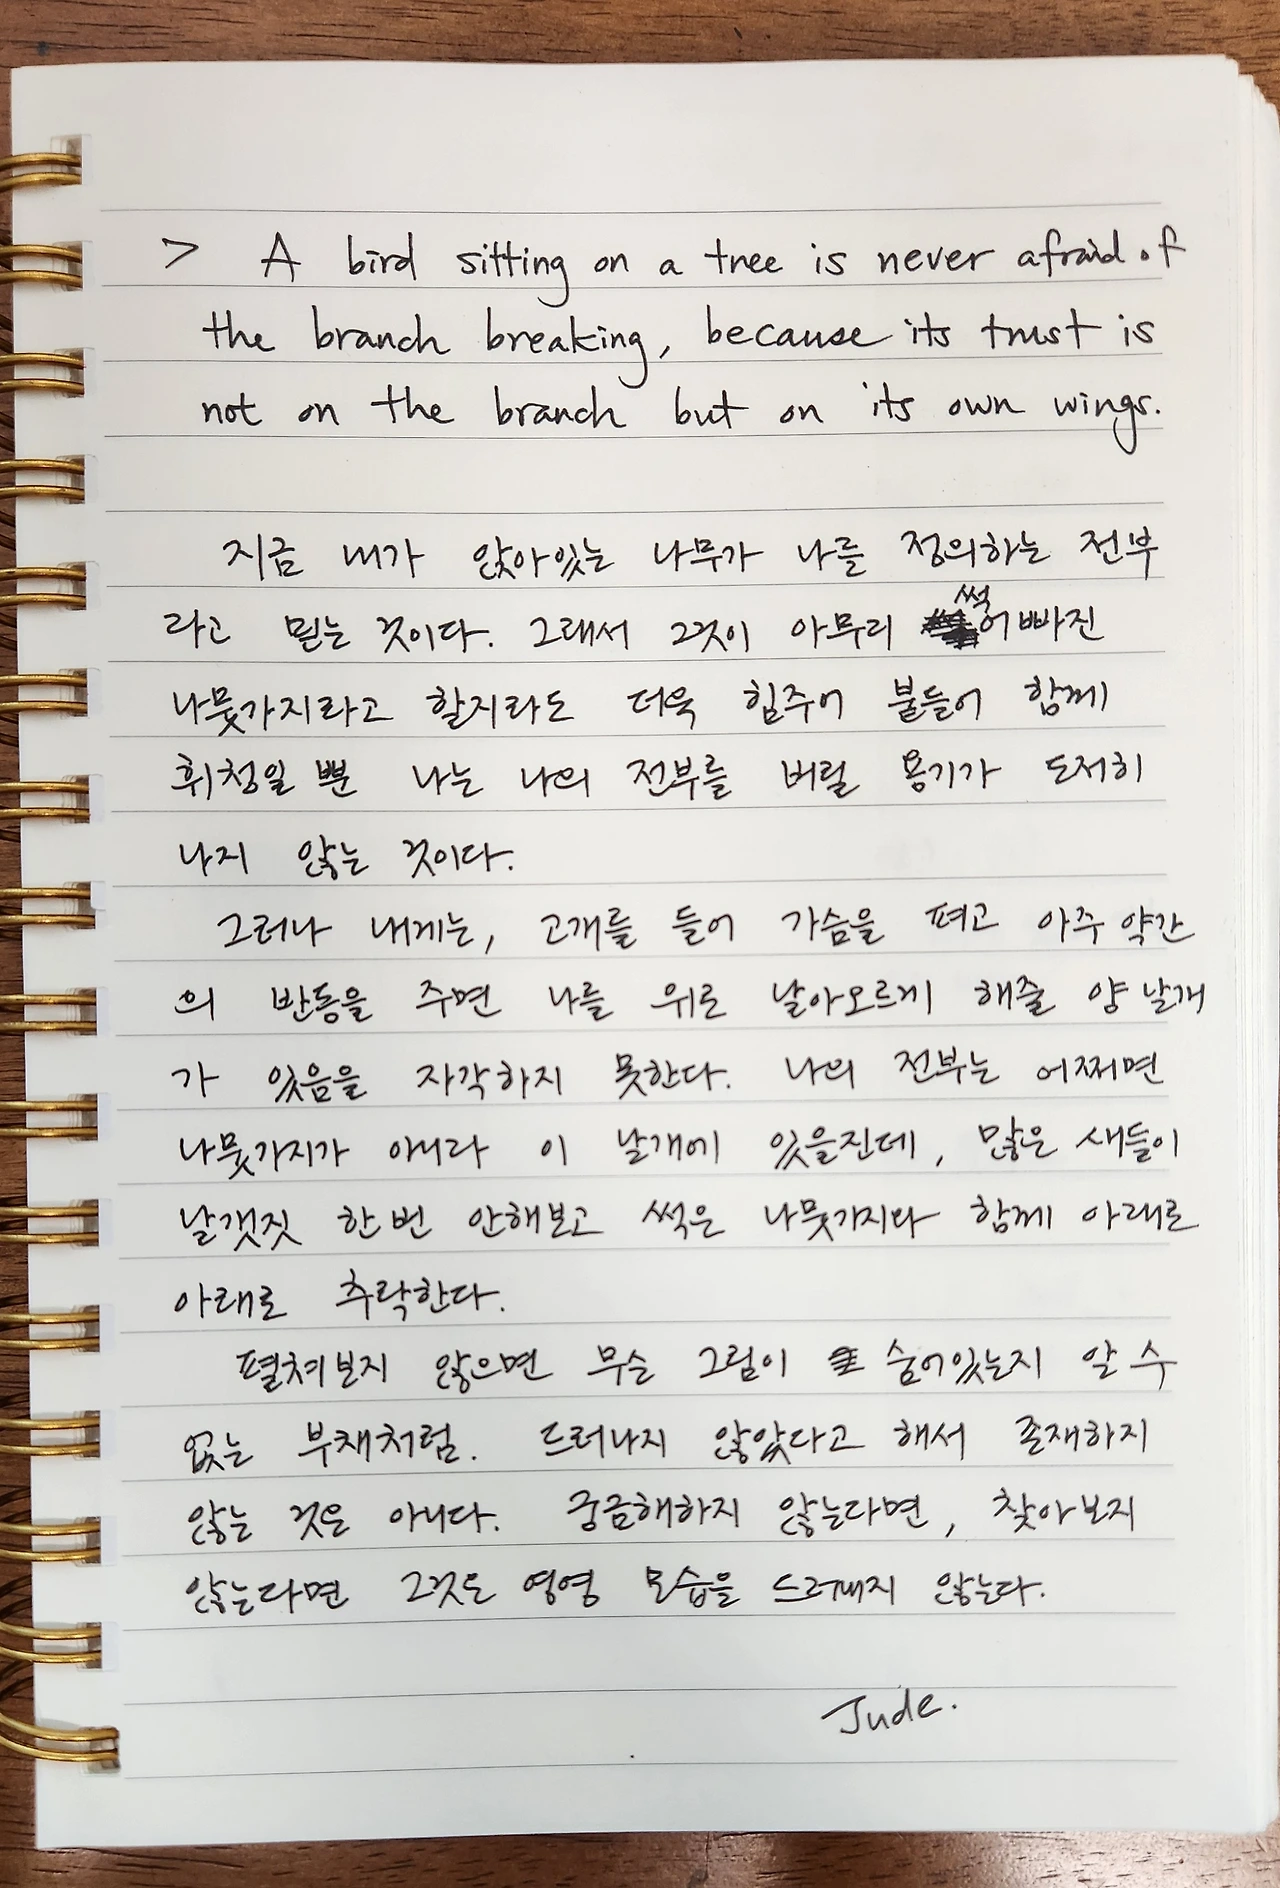 > A bird sitting on a tree is never afraid of
the branch breaking, because its trust is
not on the branch but on its own wings.
지금 내가 앉아있는 나무가 나를 정의하는 전부
라고 믿는 것이다. 그래서 그것이 아무리 썩어빠진
나뭇가지라고 할지라도 더욱 힘주어 붙들어 함께
휘청일 뿐 나는 나의 전부를 버릴 용기가 도저히
나지 않는 것이다.
그러나 내게는, 고개를 들어 가슴을 펴고 아주 약간
의 반동을 주면 나를 위로 날아오르게 해줄 양 날개
가 있음을 자각하지 못한다. 나의 전부는 어쩌면
나뭇가지가 아니라 이 날개에 있을진데, 많은 새들이
날갯짓 한번 안해보고 썩은 나뭇가지와 함께 아래로
아래로 추락한다.
펼쳐보지 않으면 무슨 그림이 숨어있는지 알 수
없는 부채처럼. 드러나지 않았다고 해서 존재하지
않는 것은 아니다. 궁금해하지 않는다면, 찾아보지
않는다면 그것은 영영 모습을 드러내지 않는다.
Jude.